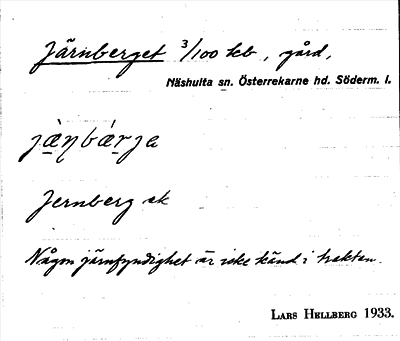 Järnberget 3/100 kb, gård,
Näshulta sn. Österrekarne hd. Söderm. l.
jæ̀ṉbárja
Jernberg ek
Någon järnfyndighet är icke känd i trakten.
LARS HELLBERG 1933.